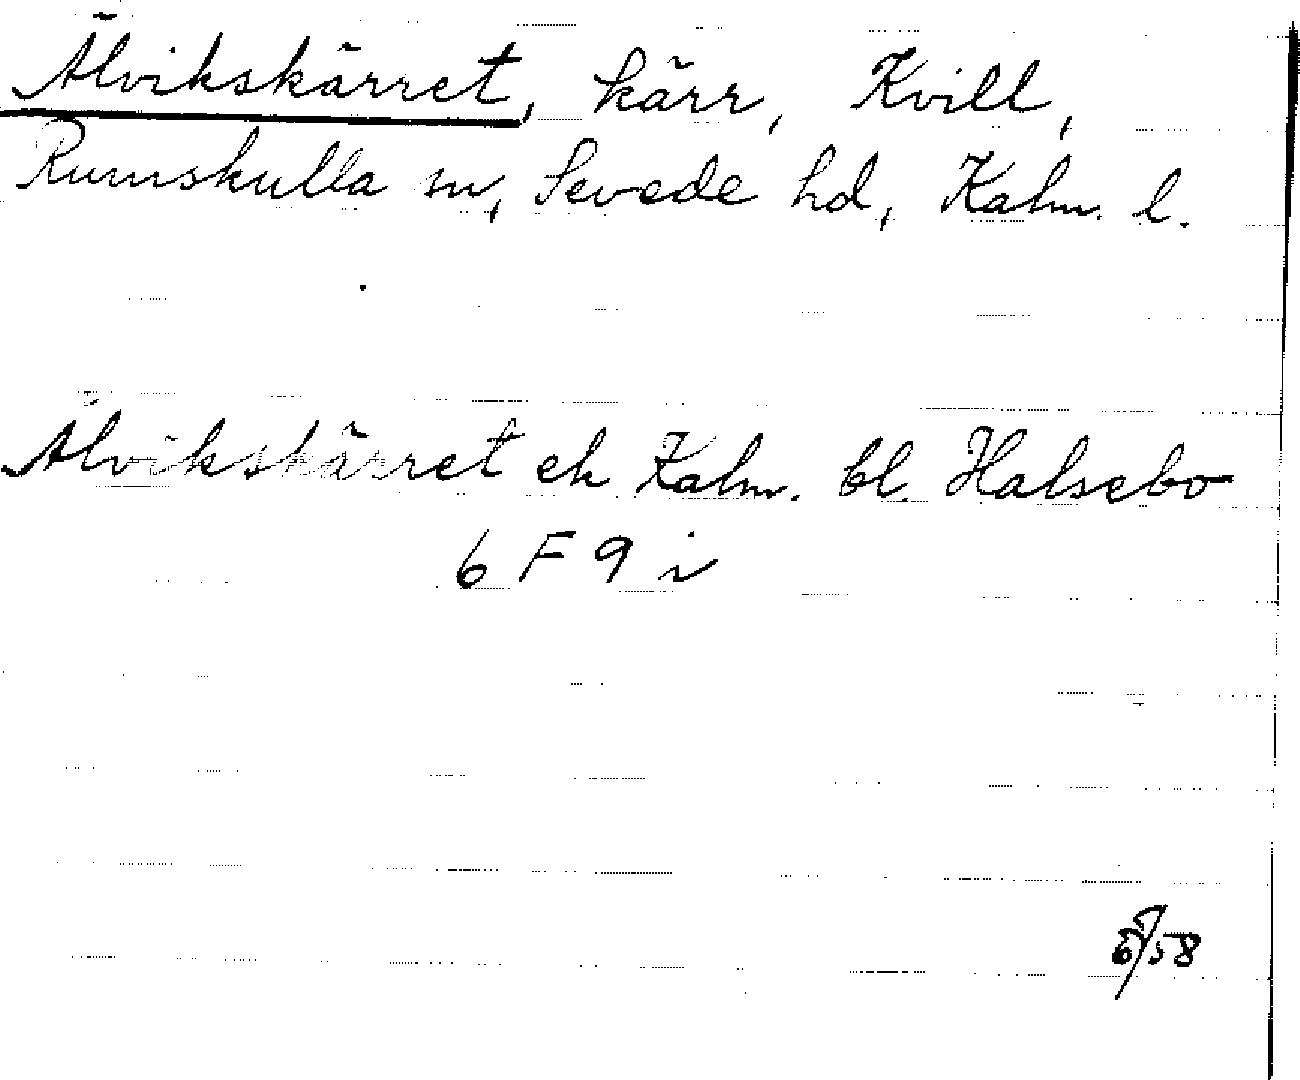 Älvikskärret, kärr, Kvill,
Rumskulla sn, Sevede hd, Kalm. l.
Älvikskärret ek Kalm. bl. Halsebo
6 F 9 i